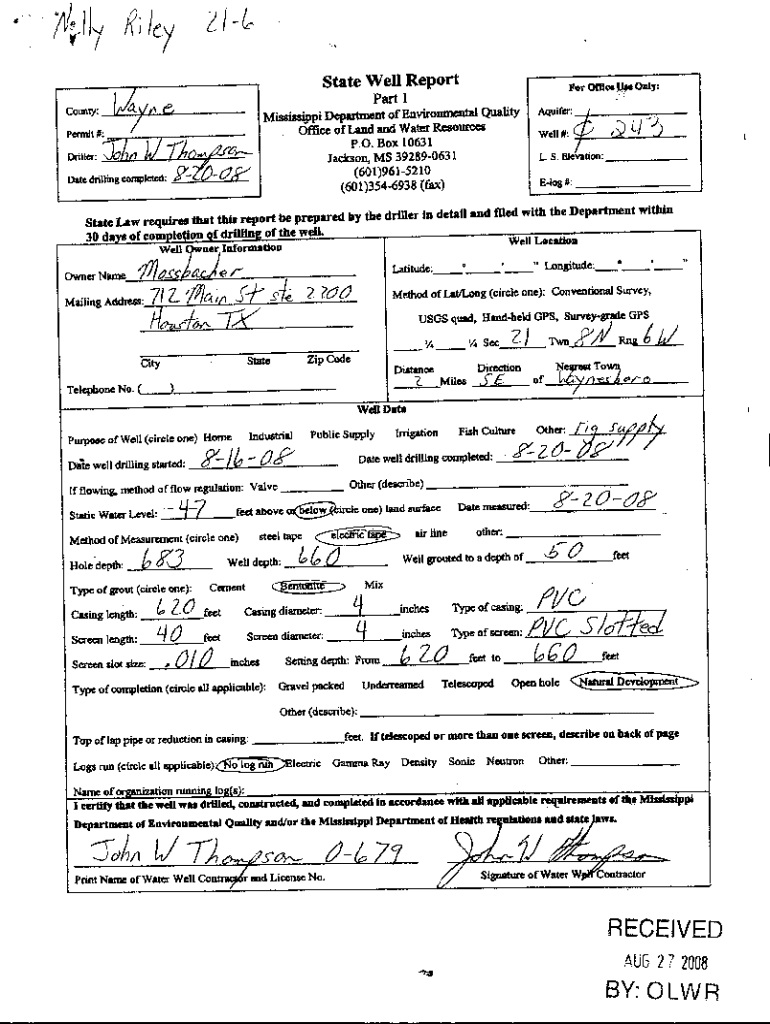 Nelly Riley 21-6
State Well Report
Part 1
Mississippi Department of Environmental Quality
Office of Land and Water Resources
P.O. Box 10631
Jackson, MS 39289-0631
(601)961-5210
(601)354-6938 (fax)
County: Wayne
Permit #:
Driller: John W Thompson
Date drilling completed: 8-20-08
For Office Use Only:
Aquifer:
Well #: 243
L. S. Elevation:
E-log #:
State Law requires that this report be prepared by the driller in detail and filed with the Department within
30 days of completion of drilling of the well.
Well Owner Information
Owner Name Mossbacher
Mailing Address: 712 Main St ste 2200
Houston TX
City State Zip Code
Telephone No. ( )
Well Location
Latitude: ° ' " Longitude: ° ' "
Method of Lat/Long (circle one): Conventional Survey,
USGS quad, Hand-held GPS, Survey-grade GPS
¼ ¼ Sec 21 Twn 8N Rng 6W
Distance Direction Nearest Town
2 Miles SE of Waynesboro
Well Data
Purpose of Well (circle one) Home Industrial Public Supply Irrigation Fish Culture Other: rig supply
Date well drilling started: 8-16-08 Date well drilling completed: 8-20-08
If flowing, method of flow regulation: Valve Other (describe)
Static Water Level: -47 feet above or below (circle one) land surface Date measured: 8-20-08
Method of Measurement (circle one) steel tape electric tape air line other:
Hole depth: 683 Well depth: 660 Well grouted to a depth of 50 feet
Type of grout (circle one): Cement Bentonite Mix
Casing length: 620 feet Casing diameter: 4 inches Type of casing: PVC
Screen length: 40 feet Screen diameter: 4 inches Type of screen: PVC Slotted
Screen slot size: .010 inches Setting depth: From 620 feet to 660 feet
Type of completion (circle all applicable): Gravel packed Underreamed Telescoped Open hole Natural Development
Other (describe):
Top of lap pipe or reduction in casing: feet. If telescoped or more than one screen, describe on back of page
Logs run (circle all applicable): No log run Electric Gamma Ray Density Sonic Neutron Other:
Name of organization running log(s):
I certify that the well was drilled, constructed, and completed in accordance with all applicable requirements of the Mississippi
Department of Environmental Quality and/or the Mississippi Department of Health regulations and state laws.
John W Thompson 0-679 John W Thompson
Print Name of Water Well Contractor and License No. Signature of Water Well Contractor
RECEIVED
AUG 27 2008
BY: OLWR